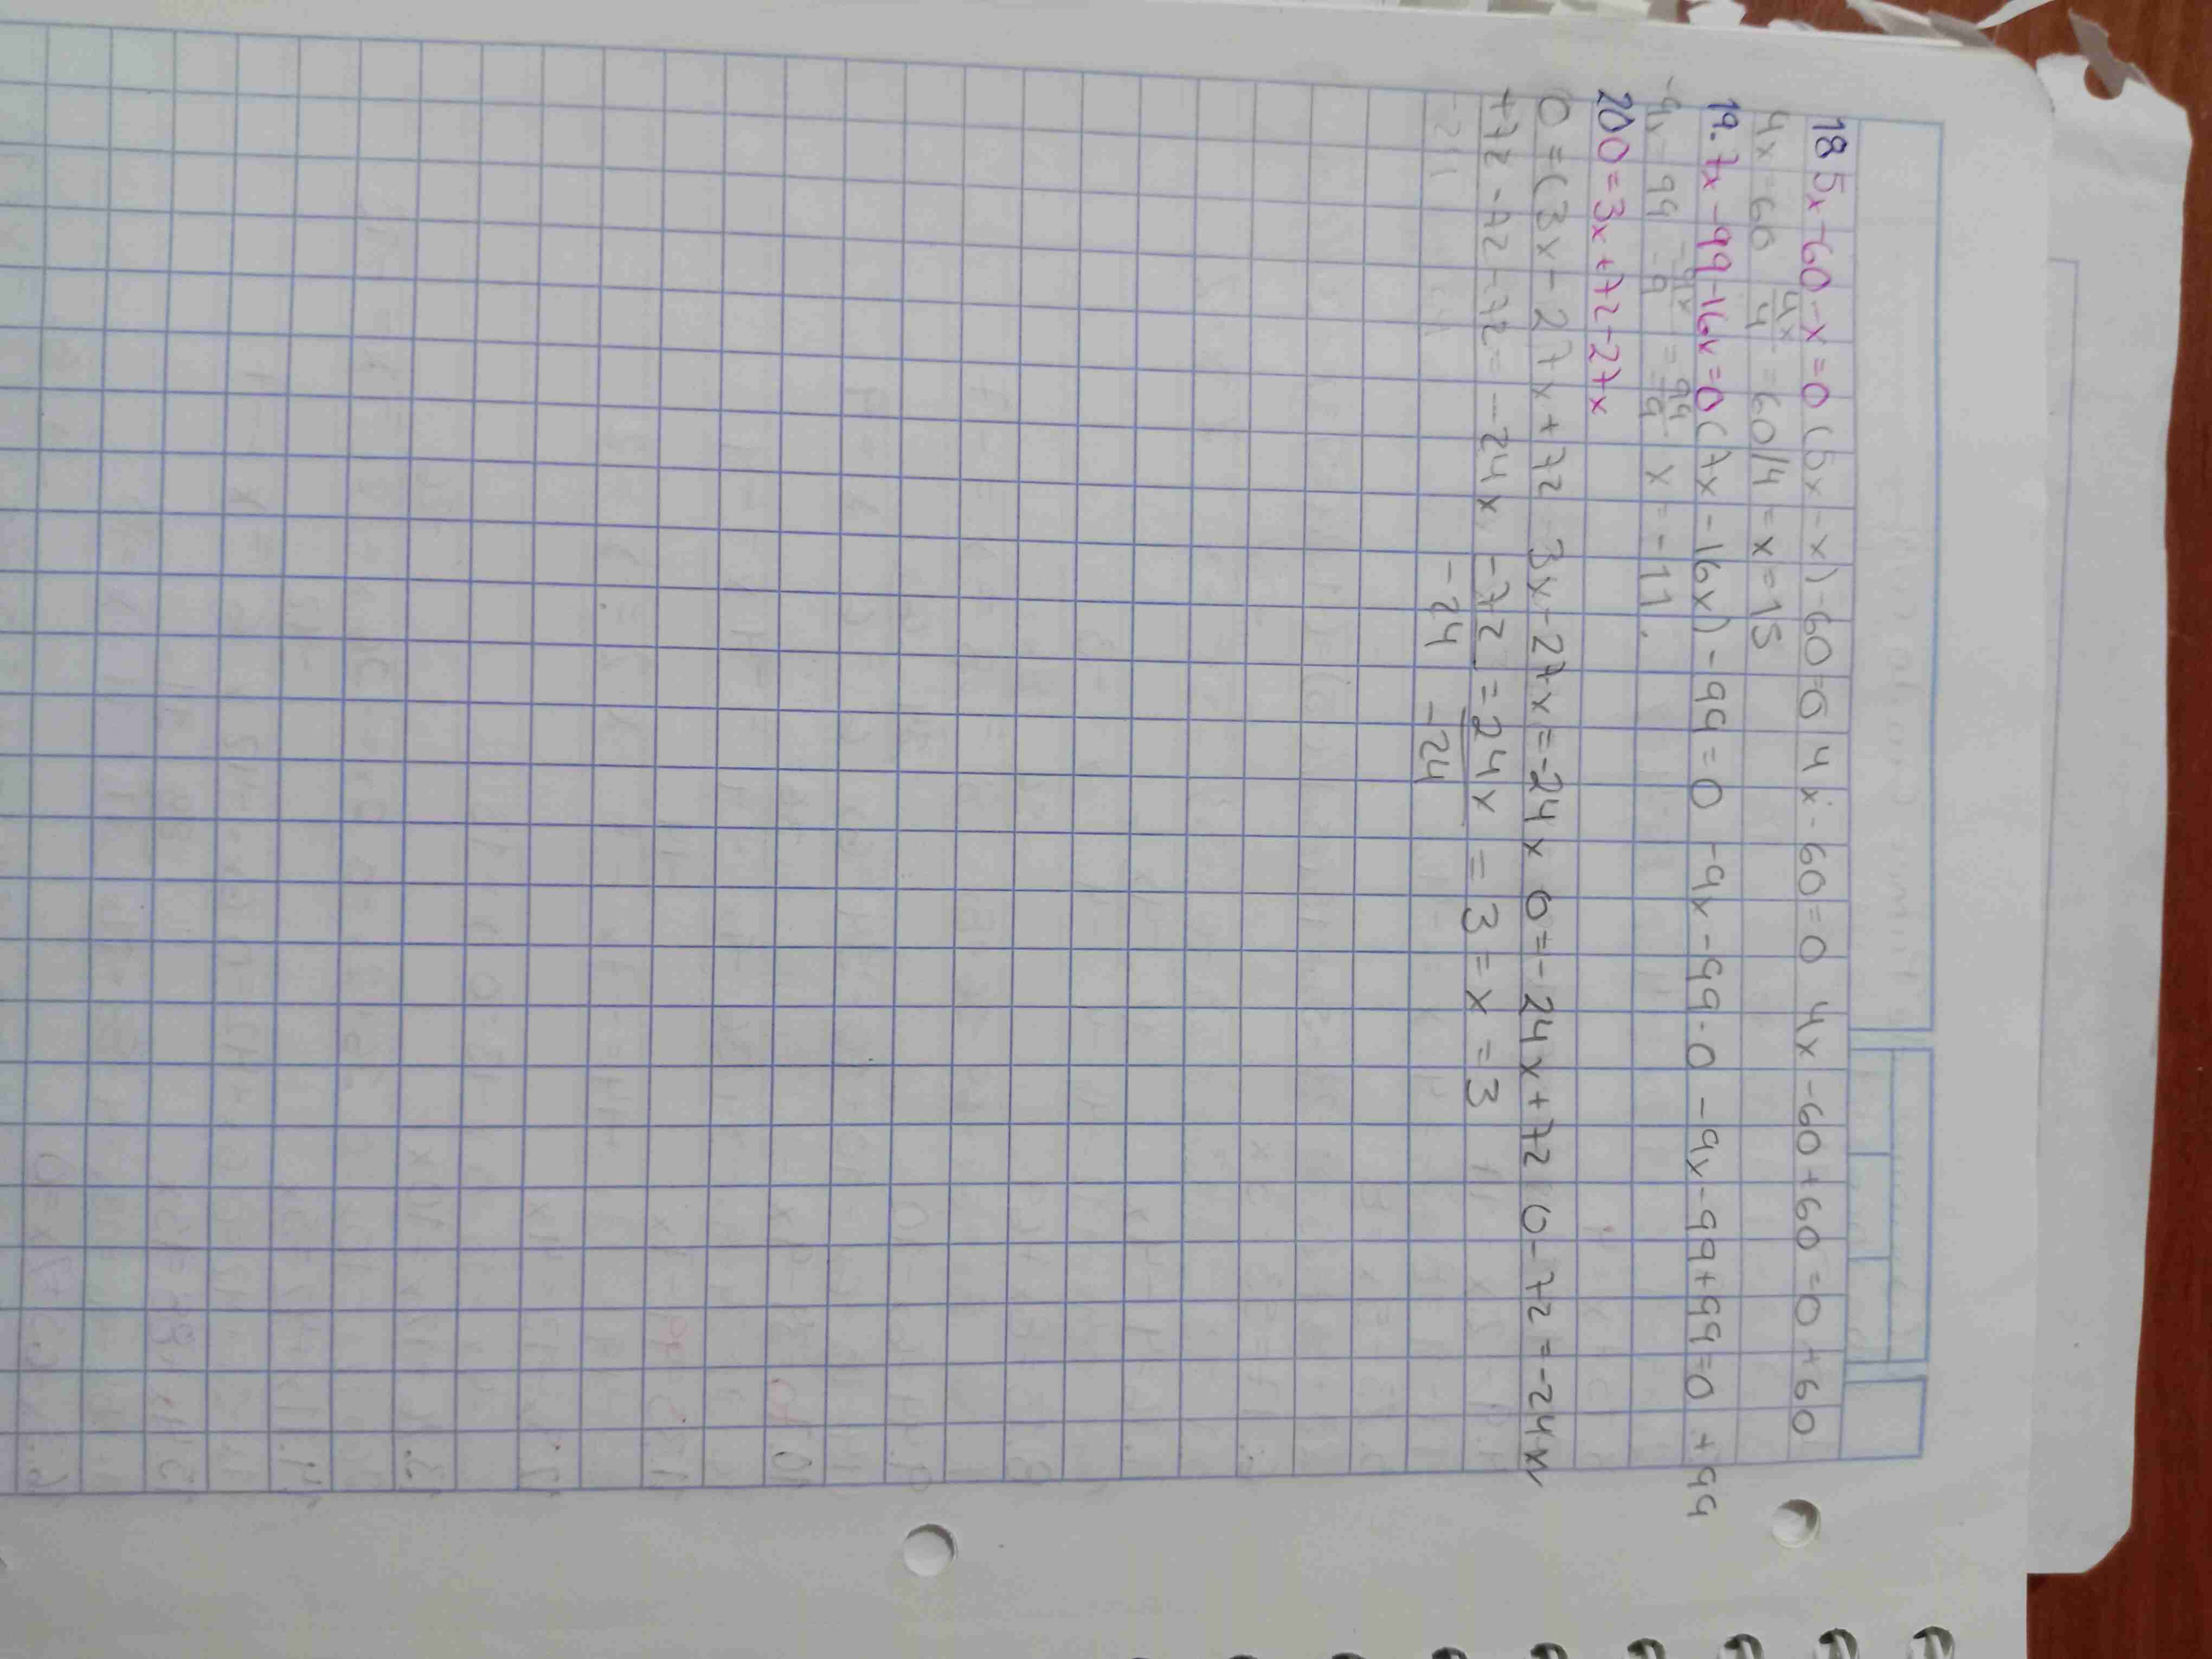 18 5x-60-x=0 (5x-x)-60=0 4x-60=0 4x-60+60=0+60
4x=60 4x/4=60/4=x=15
19. 7x-99-16x=0 (7x-16x)-99=0 -9x-99=0 -9x-99+99=0+99
-9x=99 -9x/-9=99/-9 x=-11.
20 0=3x+72-27x
0=(3x-27x+72 3x-27x=-24x 0=-24x+72 0-72=-24x
+72-72-72=-24x -72/-24=24x/-24=3=x=3